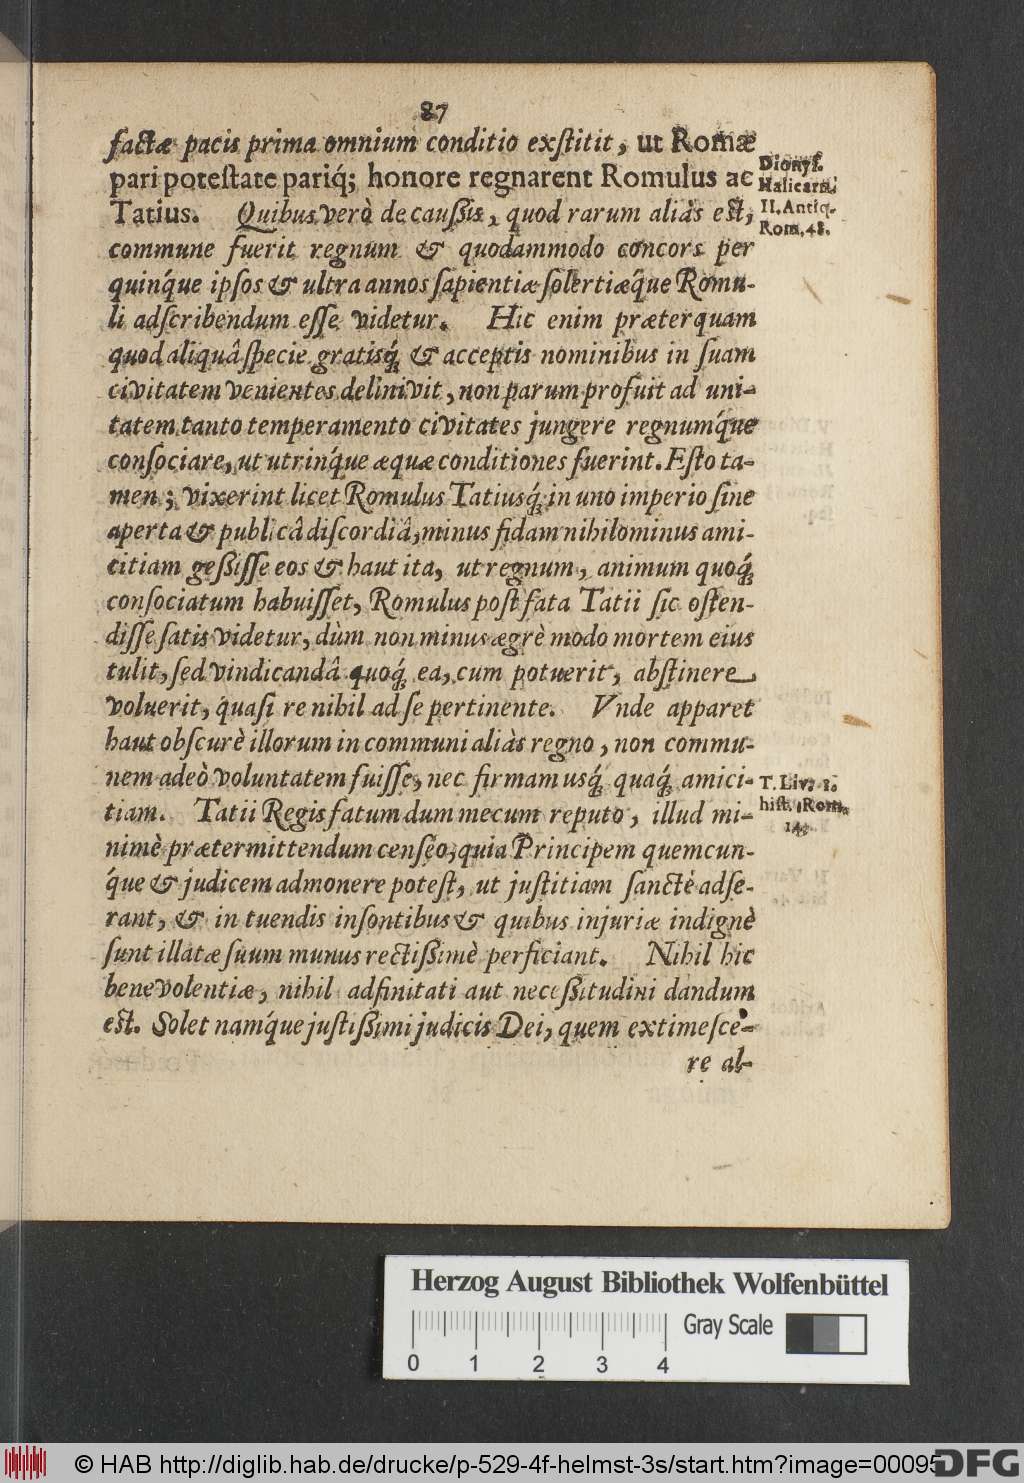 87
factæ pacis prima omnium conditio exſtitit, ut Romæ
pari poteſtate pariq́; honore regnarent Romulus ac
Tatius. Quibus verò de cauſſis, quod rarum aliàs eſt,
commune fuerit regnum & quodammodo concors per
quinq́ue ipſos & ultra annos ſapientiæ ſolertiæq́ue Romu-
li adſcribendum eſſe videtur. Hic enim præterquam
quod aliquâ ſpecie gratisq́; & acceptis nominibus in ſuam
civitatem venientes delinivit, non parum profuit ad uni-
tatem tanto temperamento civitates jungere regnumq́ue
conſociare, ut utrinq́ue æquæ conditiones fuerint. Eſto ta-
men; vixerint licet Romulus Tatiusq́; in uno imperio ſine
aperta & publicâ diſcordiâ, minus fidam nihilominus ami-
citiam geßiſſe eos & haut ita, ut regnum, animum quoq́;
conſociatum habuiſſet, Romulus poſt fata Tatii ſic oſten-
diſſe ſatis videtur, dùm non minus ægrè modo mortem eius
tulit, ſed vindicandâ quoq́; ea, cum potuerit, abſtinere
voluerit, quaſi re nihil ad ſe pertinente. Vnde apparet
haut obſcurè illorum in communi aliàs regno, non commu-
nem adeò voluntatem fuiſſe, nec firmam usq́; quaq́; amici-
tiam. Tatii Regis fatum dum mecum reputo, illud mi-
nimè prætermittendum cenſeo, quia Principem quemcun-
q́ue & judicem admonere poteſt, ut juſtitiam ſanctè adſe-
rant, & in tuendis inſontibus & quibus injuriæ indignè
ſunt illatæ ſuum munus rectißimè perficiant. Nihil hic
benevolentiæ, nihil adfinitati aut neceßitudini dandum
eſt. Solet namq́ue juſtißimi judicis Dei, quem extimeſce-
re al-
Dionyſ.
Halicarn.
II. Antiq.
Rom. 48.
T. Liv. 1.
hiſt. Rom.
14.
Herzog August Bibliothek Wolfenbüttel
Gray Scale
0 1 2 3 4
© HAB http://diglib.hab.de/drucke/p-529-4f-helmst-3s/start.htm?image=00095
DFG